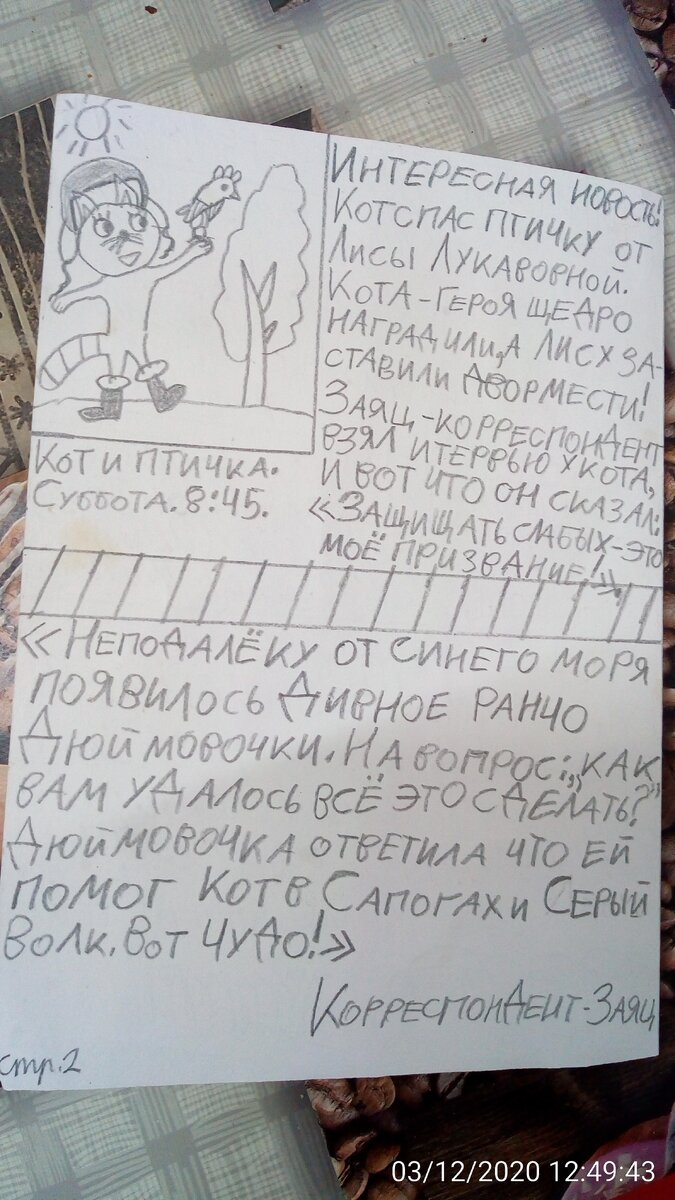 ИНТЕРЕСНАЯ НОВОСТЬ!
КОТ СПАС ПТИЧКУ ОТ
ЛИСЫ ЛУКАВОВНОЙ.
КОТА-ГЕРОЯ ЩЕДРО
НАГРАДИЛИ, А ЛИСУ ЗА-
СТАВИЛИ ДВОР МЕСТИ!
ЗАЯЦ-КОРРЕСПОНДЕНТ
ВЗЯЛ ИТЕРВЬЮ У КОТА,
И ВОТ ЧТО ОН СКАЗАЛ:
«ЗАЩИЩАТЬ СЛАБЫХ-ЭТО
МОЁ ПРИЗВАНИЕ!»
КОТ И ПТИЧКА.
СУББОТА. 8:45.
«НЕПОДАЛЁКУ ОТ СИНЕГО МОРЯ
ПОЯВИЛОСЬ ДИВНОЕ РАНЧО
ДЮЙМОВОЧКИ. НА ВОПРОС: „КАК
ВАМ УДАЛОСЬ ВСЁ ЭТО СДЕЛАТЬ?"
ДЮЙМОВОЧКА ОТВЕТИЛА ЧТО ЕЙ
ПОМОГ КОТ В САПОГАХ И СЕРЫЙ
ВОЛК. ВОТ ЧУДО!»
КОРРЕСПОНДЕНТ-ЗАЯЦ
стр.2
03/12/2020 12:49:43